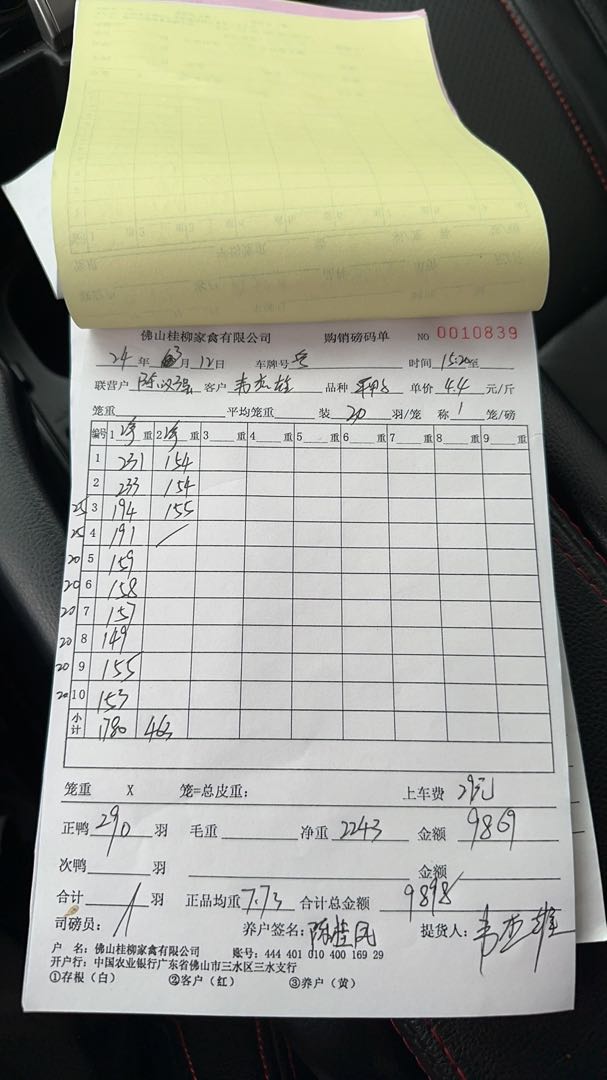 佛山桂柳家禽有限公司 购销磅码单 NO 0010839
24 年 3 月 12 日 车牌号 时间 15:20 至
联营户 陈汉强 客户 韦杰雄 品种 单价 4.4 元/斤
笼重 平均笼重 装 20 羽/笼 称 1 笼/磅
编号 1 净 重 2 净 重 3 重 4 重 5 重 6 重 7 重 8 重 9 重
1 231 154
2 233 154
25 3 194 155
25 4 191 /
20 5 159
20 6 158
20 7 157
20 8 149
20 9 155
20 10 153
小计 1780 463
笼重 X 笼=总皮重: 上车费 29元
正鸭 290 羽 毛重 净重 2243 金额 9869
次鸭 羽 金额
合计 羽 正品均重 7.73 合计总金额 9898
司磅员: 养户签名: 陈桂凤 提货人: 韦杰雄
户 名: 佛山桂柳家禽有限公司 账号: 444 401 010 400 169 29
开户行: 中国农业银行广东省佛山市三水区三水支行
①存根(白) ②客户(红) ③养户(黄)